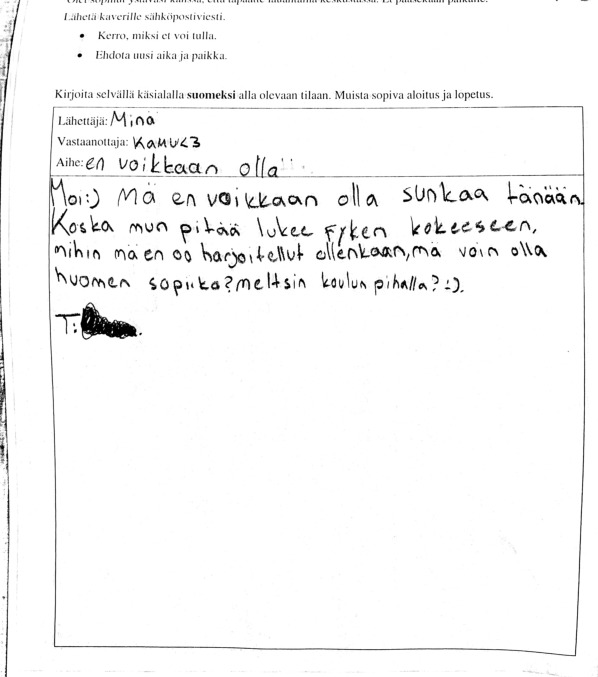 Lähetä kaverille sähköpostiviesti.
• Kerro, miksi et voi tulla.
• Ehdota uusi aika ja paikka.
Kirjoita selvällä käsialalla suomeksi alla olevaan tilaan. Muista sopiva aloitus ja lopetus.
Lähettäjä: Minä
Vastaanottaja: KAMU<3
Aihe: en voikkaan olla
Moi:) Mä en voikkaan olla sunkaa tänään.
Koska mun pitää lukee fyken kokeeseen,
mihin mä en oo harjoitellut ollenkaan, mä voin olla
huomen sopiiko? meltsin koulun pihalla? :).
T: